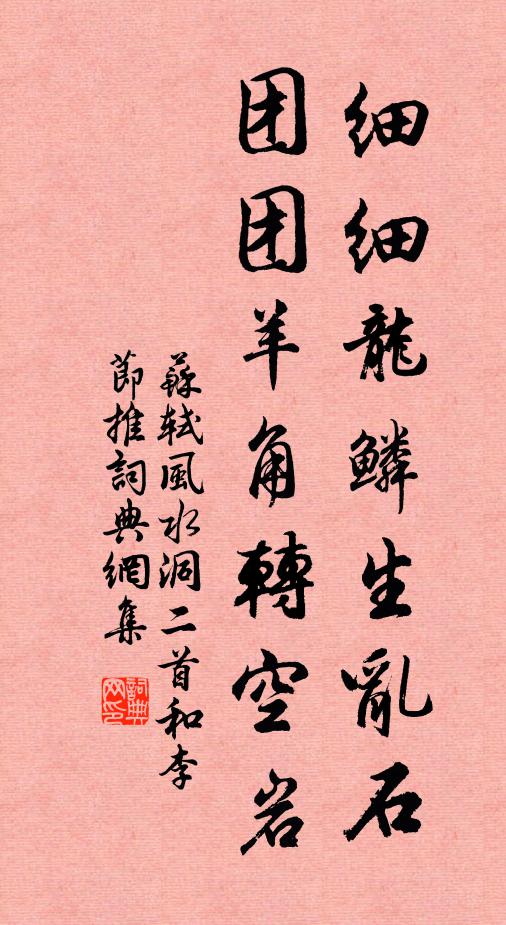 细细龍鱗生亂石
团团羊角轉空岩
蘇軾風水洞二首和李
節推詞典網集
詞典
网印